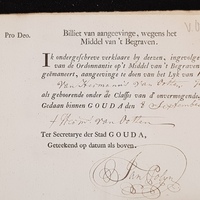 Pro Deo.
Billiet van aangeevinge, wegens het
Middel van 't Begraven.
Ik ondergeschreve verklaare by deezen, ingevolge
van de Ordonnantie op 't Middel van 't Begraven
geëmaneert, aangevinge te doen van het Lyk van
van Hermanus van
als gehoorende onder de Classis van d'onvermogende
Gedaan binnen GOUDA den 8 September
van
Ter Secretarye der Stad GOUDA,
Geteekend op datum als boven.